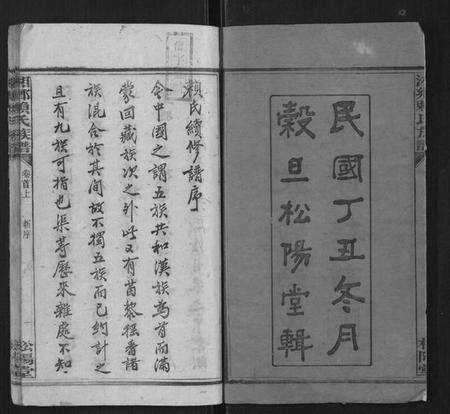 民國丁丑冬月
穀旦松陽堂輯
賴氏續修譜序
今中國之謂五族共和漢族為首而滿
蒙回藏族次之外此又有苗黎猺番諸
族混合於其間故不獨五族而已約計之
且有九族可指也渠等歷來雜處不知
賴氏族譜
卷首上
新序
松陽堂